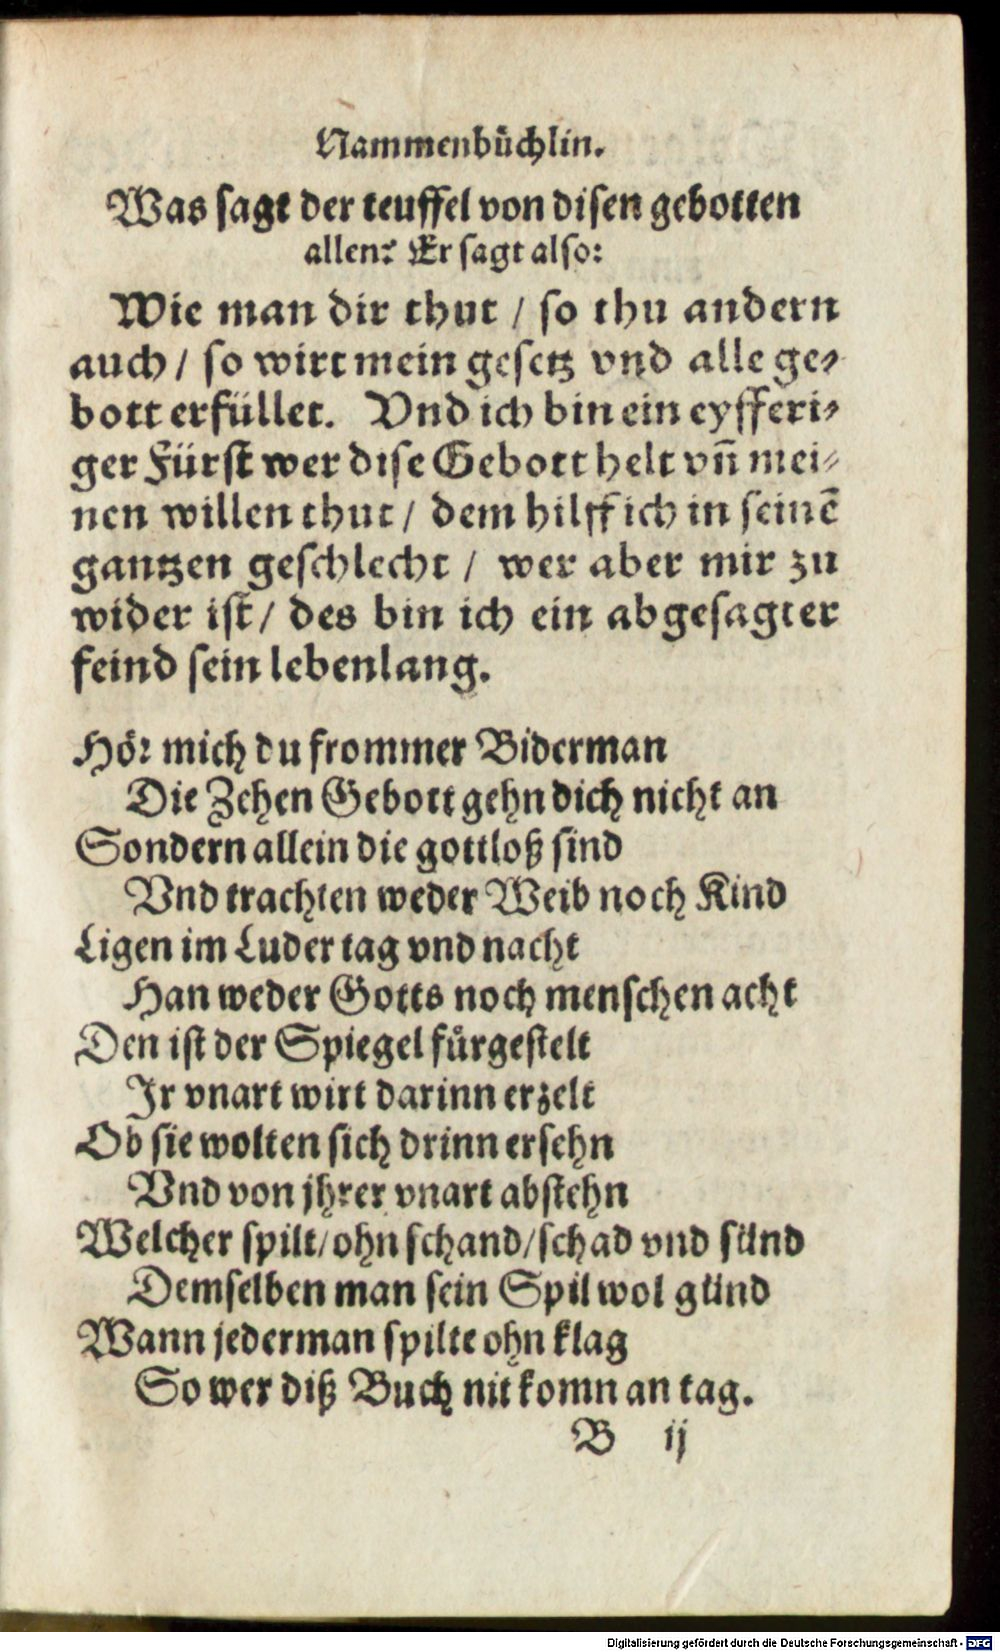 Nammenbüchlin.
Was sagt der teuffel von disen gebotten
allen? Er sagt also:
Wie man dir thut / so thu andern
auch / so wirt mein gesetz vnd alle ge⸗
bott erfüllet. Vnd ich bin ein eyfferi⸗
ger Fürst wer dise Gebott helt vñ mei⸗
nen willen thut / dem hilff ich in seinē
gantzen geschlecht / wer aber mir zu
wider ist / des bin ich ein abgesagter
feind sein lebenlang.
Hör mich du frommer Biderman
Die Zehen Gebott gehn dich nicht an
Sondern allein die gottloß sind
Vnd trachten weder Weib noch Kind
Ligen im Luder tag vnd nacht
Han weder Gotts noch menschen acht
Den ist der Spiegel fürgestelt
Ir vnart wirt darinn erzelt
Ob sie wolten sich drinn ersehn
Vnd von jhrer vnart abstehn
Welcher spilt/ohn schand/schad vnd sünd
Demselben man sein Spil wol günd
Wann jederman spilte ohn klag
So wer diß Buch nit komn an tag.
B ij
Digitalisierung gefördert durch die Deutsche Forschungsgemeinschaft - DFG